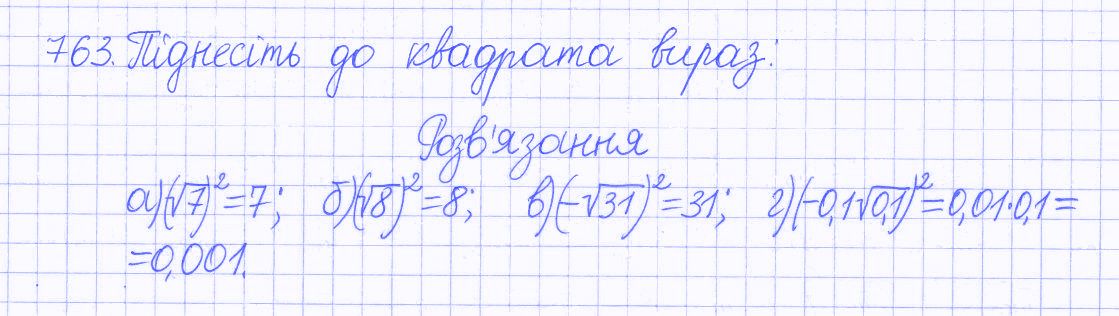 763. Піднесіть до квадрата вираз:
Розв'язання
а) (√7)² = 7; б) (√8)² = 8; в) (-√31)² = 31; г) (-0,1√0,1)² = 0,01·0,1 =
= 0,001.